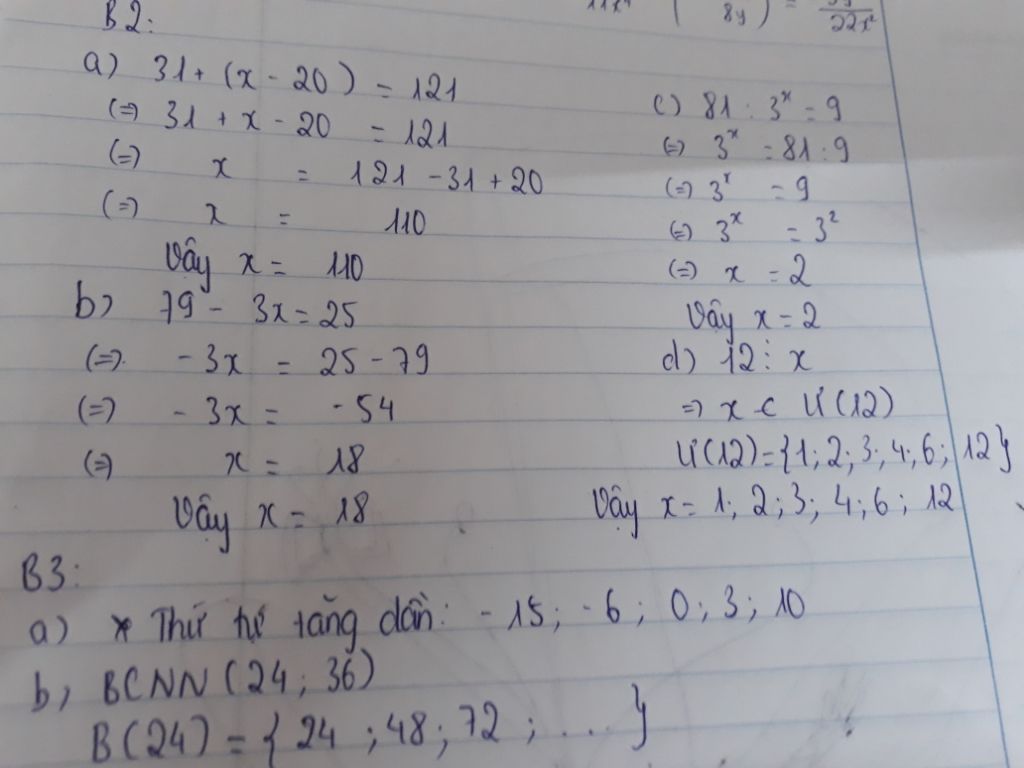 B2:
a) 31 + (x - 20) = 121
(=) 31 + x - 20 = 121
(=) x = 121 - 31 + 20
(=) x = 110
Vậy x = 110
b) 79 - 3x = 25
(=) - 3x = 25 - 79
(=) - 3x = - 54
(=) x = 18
Vậy x = 18
8y ) =
22x²
c) 81 : 3ˣ = 9
(=) 3ˣ = 81 : 9
(=) 3ˣ = 9
(=) 3ˣ = 3²
(=) x = 2
Vậy x = 2
d) 12 ⋮ x
=) x ∈ Ư(12)
Ư(12) = {1; 2; 3; 4; 6; 12}
Vậy x = 1; 2; 3; 4; 6; 12
B3:
a) * Thứ tự tăng dần: - 15; - 6; 0; 3; 10
b) BCNN (24; 36)
B(24) = { 24 ; 48; 72 ; ... }